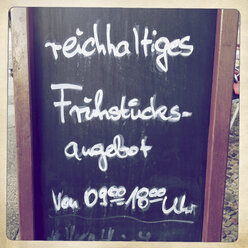 reichhaltiges
Frühstücks-
angebot
Von 09⁰⁰-18⁰⁰ Uhr